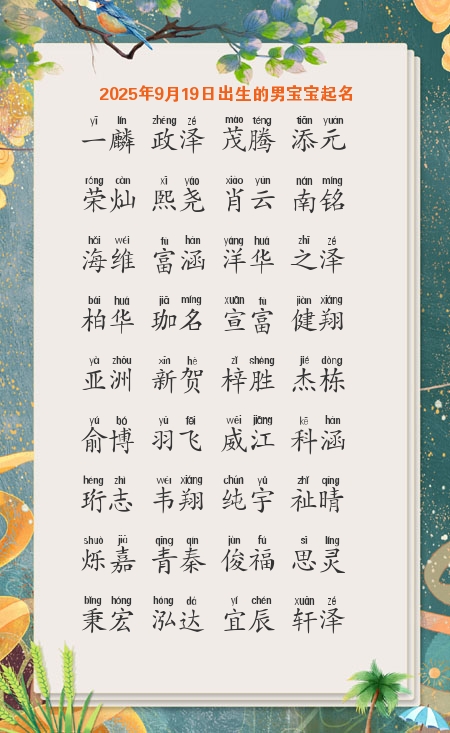 2025年9月19日出生的男宝宝起名
yī lín zhèng zé mào téng tiān yuán
一麟 政泽 茂腾 添元
róng càn xī yáo xiāo yún nán míng
荣灿 熙尧 肖云 南铭
hǎi wéi fù hán yáng huá zhī zé
海维 富涵 洋华 之泽
bǎi huá jiā míng xuān fù jiàn xiáng
柏华 珈名 宣富 健翔
yà zhōu xīn hè zǐ shèng jié dòng
亚洲 新贺 梓胜 杰栋
yú bó yǔ fēi wēi jiāng kē hán
俞博 羽飞 威江 科涵
héng zhì wéi xiáng chún yǔ zhǐ qíng
珩志 韦翔 纯宇 祉晴
shuò jiā qīng qín jùn fú sī líng
烁嘉 青秦 俊福 思灵
bǐng hóng hóng dá yí chén xuān zé
秉宏 泓达 宜辰 轩泽